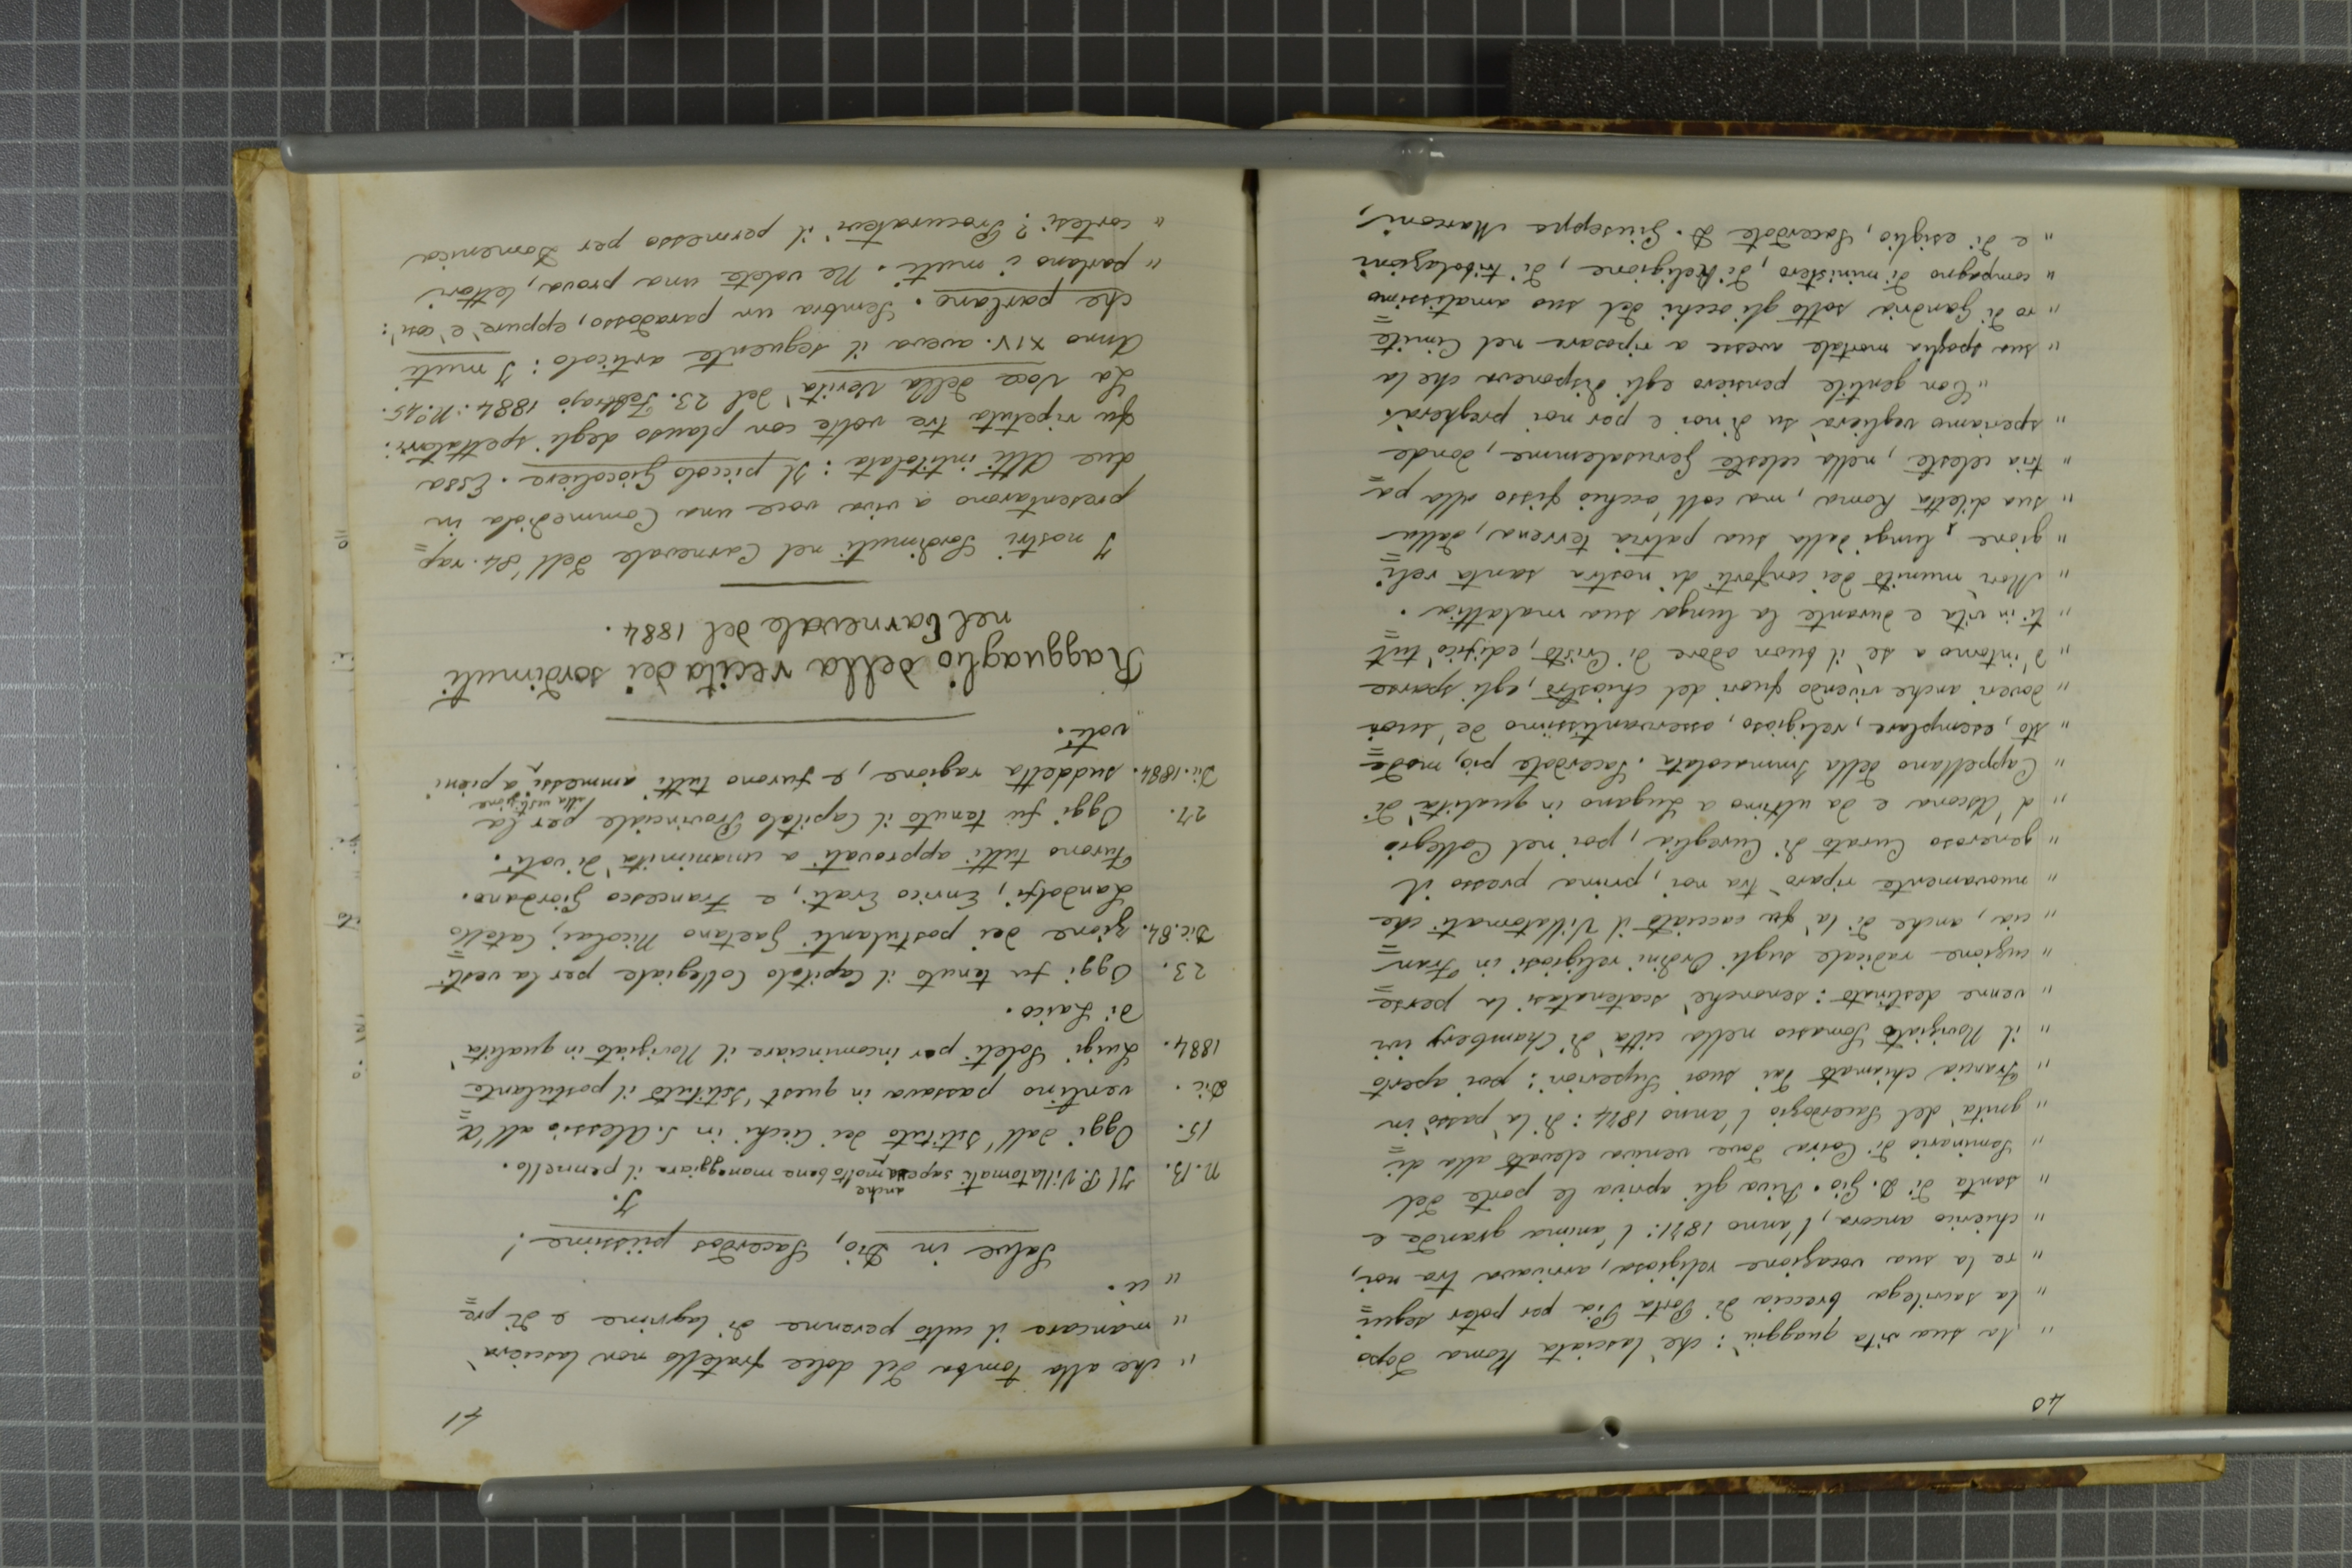 40
" la sua vita quaggiù: che lasciata Roma dopo
" la sacrilega breccia di Porta Pia per poter segui=
" re la sua vocazione religiosa, arrivava tra noi,
" chierico ancora, l'anno 1871: l'anima grande e
" santa di D. Gio. Riva gli apriva le porte del
" Seminario di Coira dove veniva elevato alla di=
" gnità del Sacerdozio l'anno 1874: di là passò in
" Francia chiamato dai suoi Superiori: poi aperto
" il Noviziato Somasco nella città di Chambery ivi
" venne destinato: senonchè scatenatasi la perse=
" cuzione radicale sugli Ordini religiosi in Fran=
" cia, anche di là fu cacciato il Villatomati che
" nuovamente riparò tra noi, prima presso il
" generoso Curato di Cureglia, poi nel Collegio
" d'Ascona e da ultimo a Lugano in qualità di
" Cappellano della Immacolata. Sacerdote pio, mode=
" sto, esemplare, religioso, osservantissimo de' suoi
" doveri anche vivendo fuori del chiostro, egli sparse
" d'intorno a sè il buon odore di Cristo, edificò tut=
" ti in vita e durante la lunga sua malattia.
" Morì munito dei conforti di nostra santa reli=
" gione, lungi dalla sua patria terrena, dalla
" sua diletta Roma, ma coll'occhio fisso alla pa=
" tria celeste, nella celeste Gerusalemme, donde
" speriamo veglierà su di noi e per noi pregherà.
" Con gentile pensiero egli disponeva che la
" sua spoglia mortale avesse a riposare nel Cimite=
" ro di Gandria sotto gli occhi del suo amatissimo
" compagno di ministero, di Religione, di tribolazioni
" e di esiglio, Sacerdote D. Giuseppe Marconi,
41
" che alla tomba del dolce fratello non lascierà
" mancare il culto perenne di lagrime e di pre=
" ci.
Salve in Dio, Sacerdos piissime!
J.
N.B. Il P. Villatomati sapeva anche molto bene maneggiare il pennello.
15. Oggi dall'Istituto dei Ciechi in S. Alessio all'A=
Dic. ventino passava in quest'Istituto il postulante
1884. Luigi Soleti per incominciare il Noviziato in qualità
di Laico.
23. Oggi fu tenuto il Capitolo Collegiale per la vesti=
Dic. 84. zione dei postulanti Gaetano Nicolai, Catello
Landolfi, Enrico Erati, e Francesco Giordano.
Furono tutti approvati a unanimità di voti.
27. Oggi fu tenuto il Capitolo Provinciale per la
Dic. 1884. suddetta ragione, e furono tutti ammessi alla vestizione a pieni
voti.
Ragguaglio della recita dei sordimuti
nel Carnevale del 1884.
I nostri Sordimuti nel Carnevale dell'84. rap=
presentarono a viva voce una Commediola in
due Atti intitolata: Il piccolo Giocoliere. Essa
fu ripetuta tre volte con plauso degli spettatori:
La Voce della Verità del 23. Febbrajo 1884. N.º 45.
Anno XIV. aveva il seguente articolo: I muti
che parlano. Sembra un paradosso, eppure è così:
" parlano i muti. Ne volete una prova, lettori
" cortesi? Procuratevi il permesso per Domenica